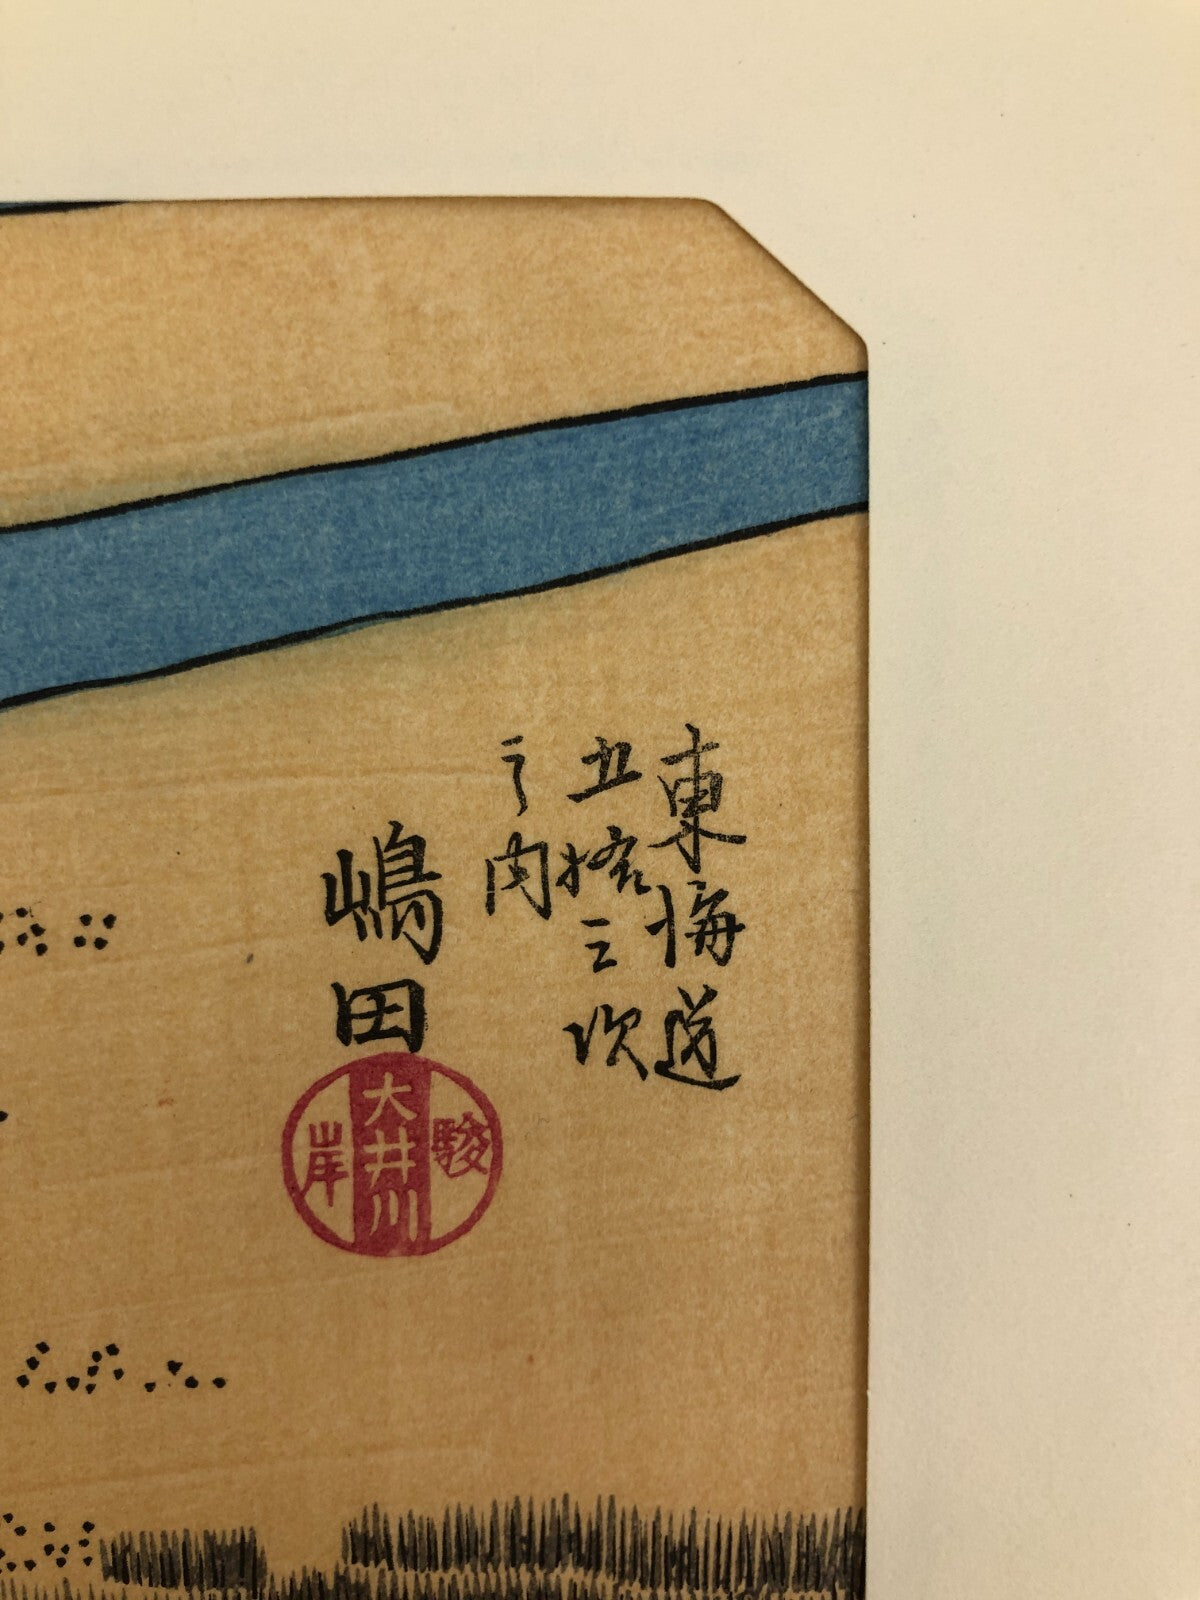 東海道
五拾三次
之内
嶋田
駿
大井川
岸